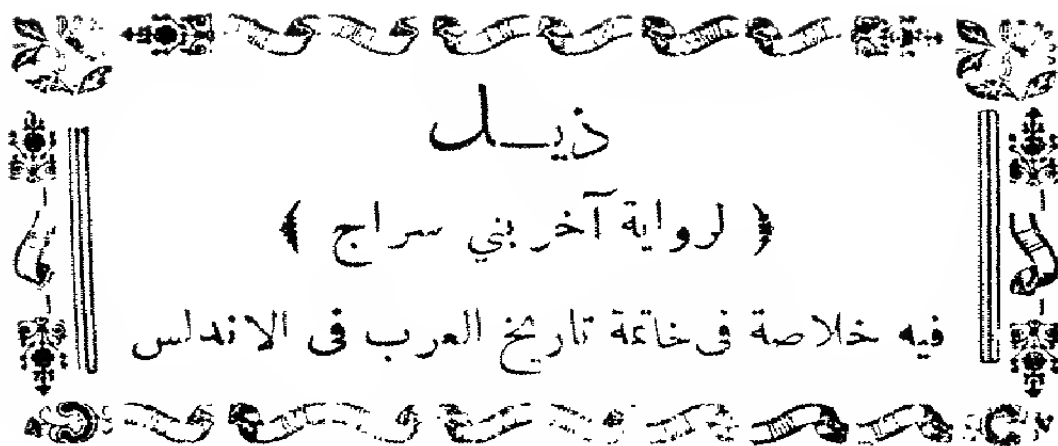 ذيل
﴿ لرواية آخر بني سراج ﴾
فيه خلاصة فى خاتمة تاريخ العرب فى الاندلس